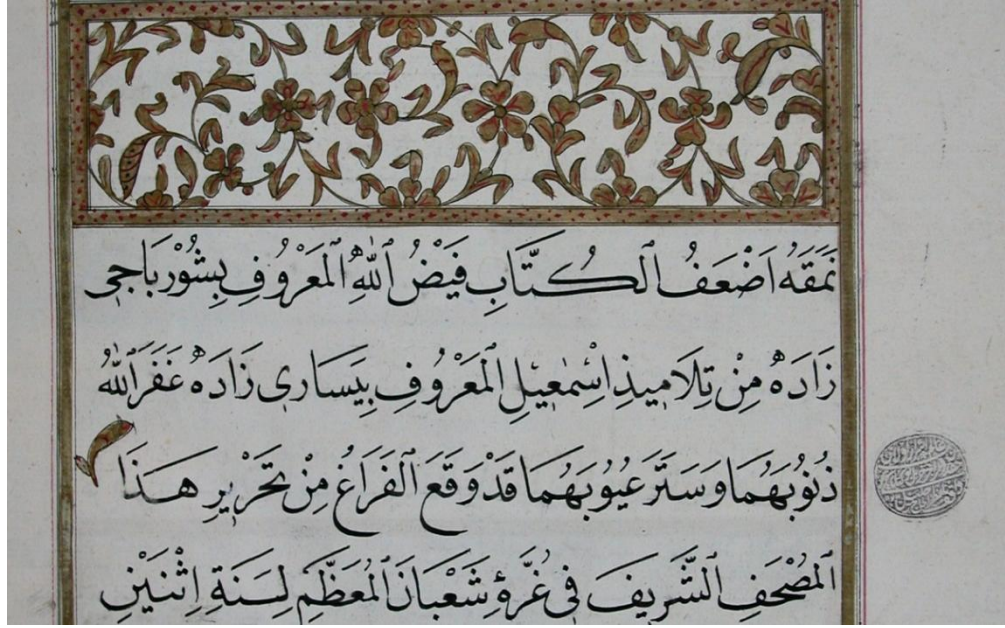 نَمَقَهُ اَضْعَفُ الْكُتَّابِ فَيْضُ اللّٰهِ الْمَعْرُوفِ بِشُوْرْبَاجِى
زَادَهْ مِنْ تِلَامِيذِ اِسْمٰعِيلِ الْمَعْرُوفِ بِيَسَارِى زَادَهْ غَفَرَ اللّٰهُ
ذُنُوبَهُمَا وَسَتَرَ عُيُوبَهُمَا قَدْ وَقَعَ الْفَرَاغُ مِنْ تَحْرِيرِ هٰذَا
الْمُصْحَفِ الشَّرِيفِ فِى غُرَّةِ شَعْبَانَ الْمُعَظَّمِ لِسَنَةِ اِثْنَيْنِ